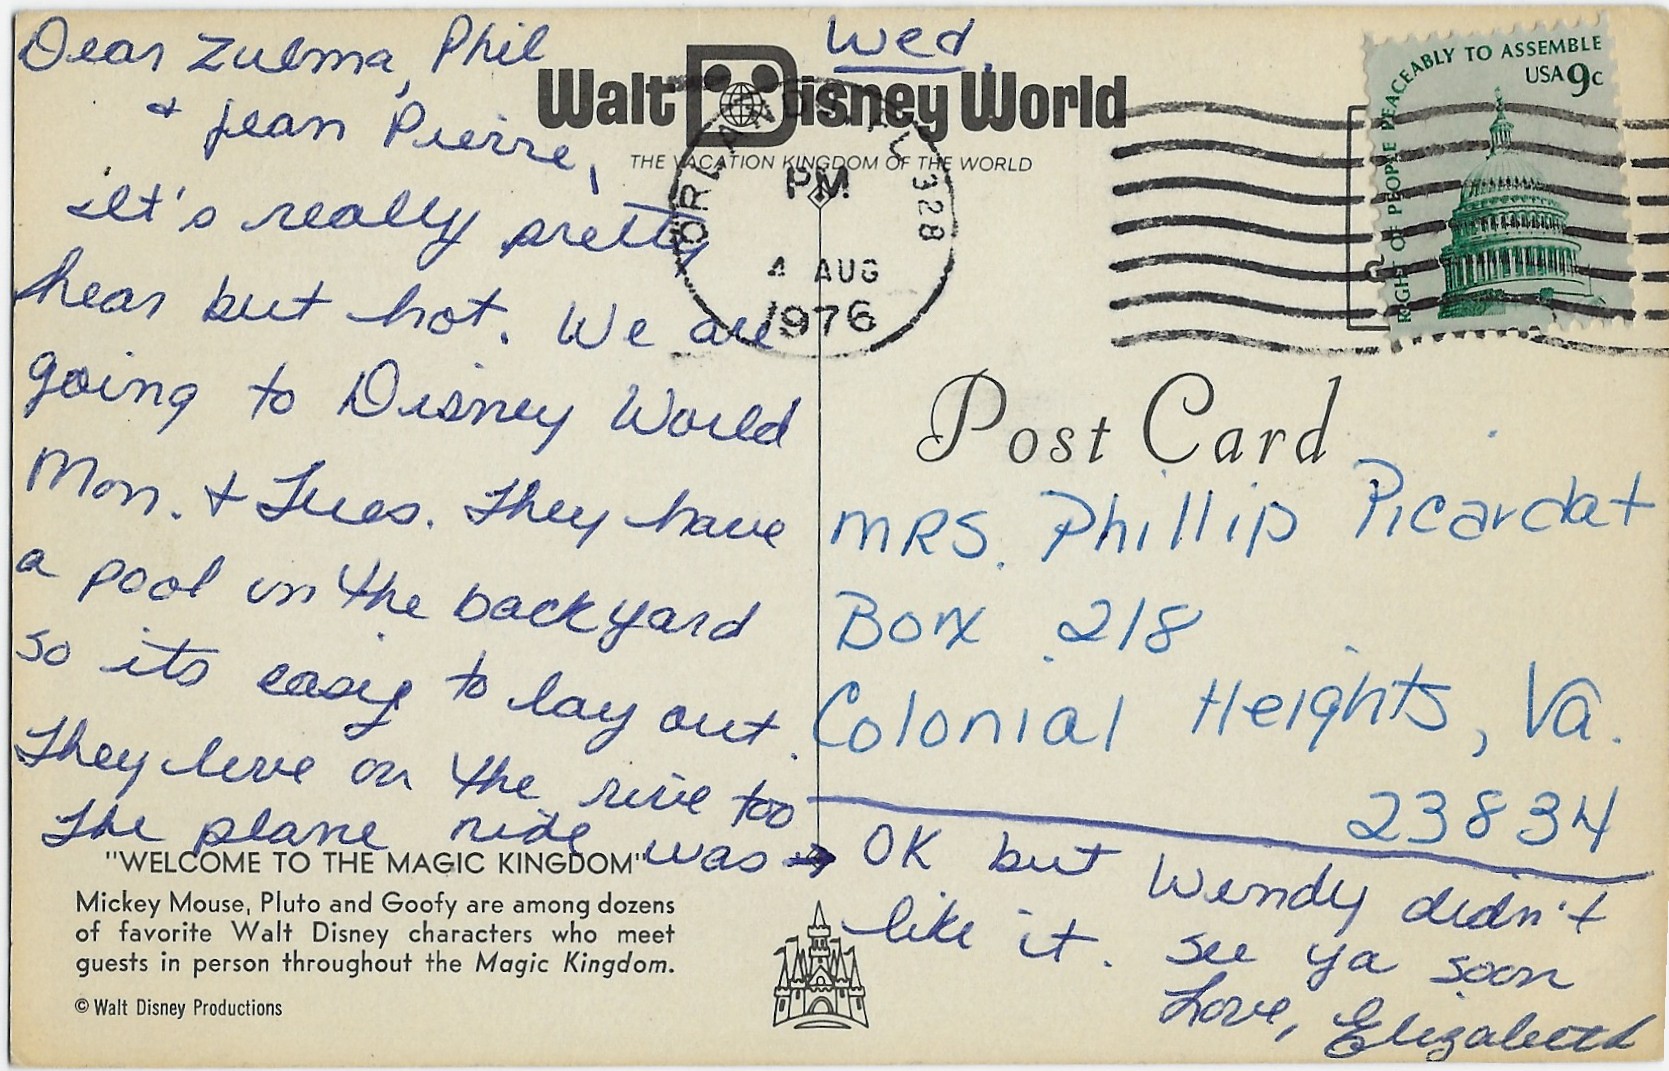 Dear Zulma, Phil
& Jean Pierre,
Wed.
Walt Disney World
THE VACATION KINGDOM OF THE WORLD
ORLANDO, FL 328
PM
4 AUG
1976
RIGHT OF PEOPLE PEACEABLY TO ASSEMBLE
USA 9c
it's really pretty
hear but hot. We are
going to Disney World
Mon. & Tues. They have
a pool in the backyard
so its easy to lay out.
They live on the rive too
The plane ride was → OK but Wendy didn't
like it. See ya soon
Love, Elizabeth
Post Card
MRS. Phillip Picardat
Box 218
Colonial Heights, Va.
23834
"WELCOME TO THE MAGIC KINGDOM"
Mickey Mouse, Pluto and Goofy are among dozens
of favorite Walt Disney characters who meet
guests in person throughout the Magic Kingdom.
© Walt Disney Productions